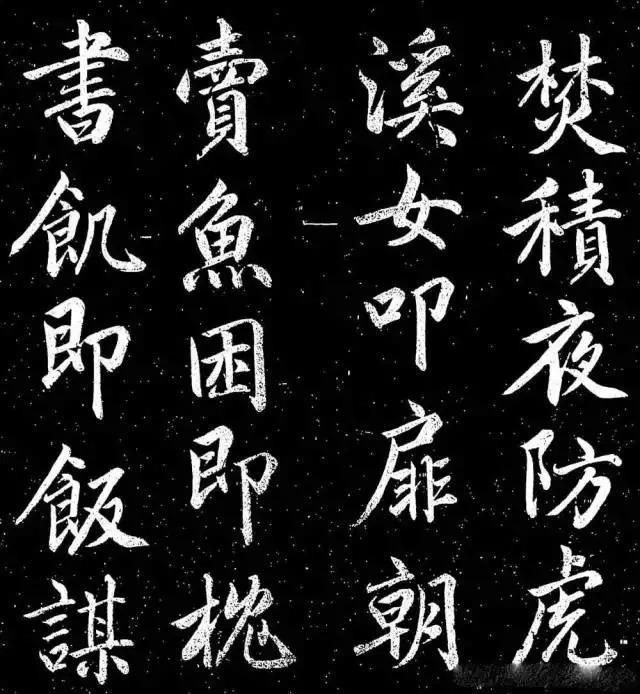 焚積夜防虎
溪女叩扉朝
賣魚困即枕
書飢即飯謀